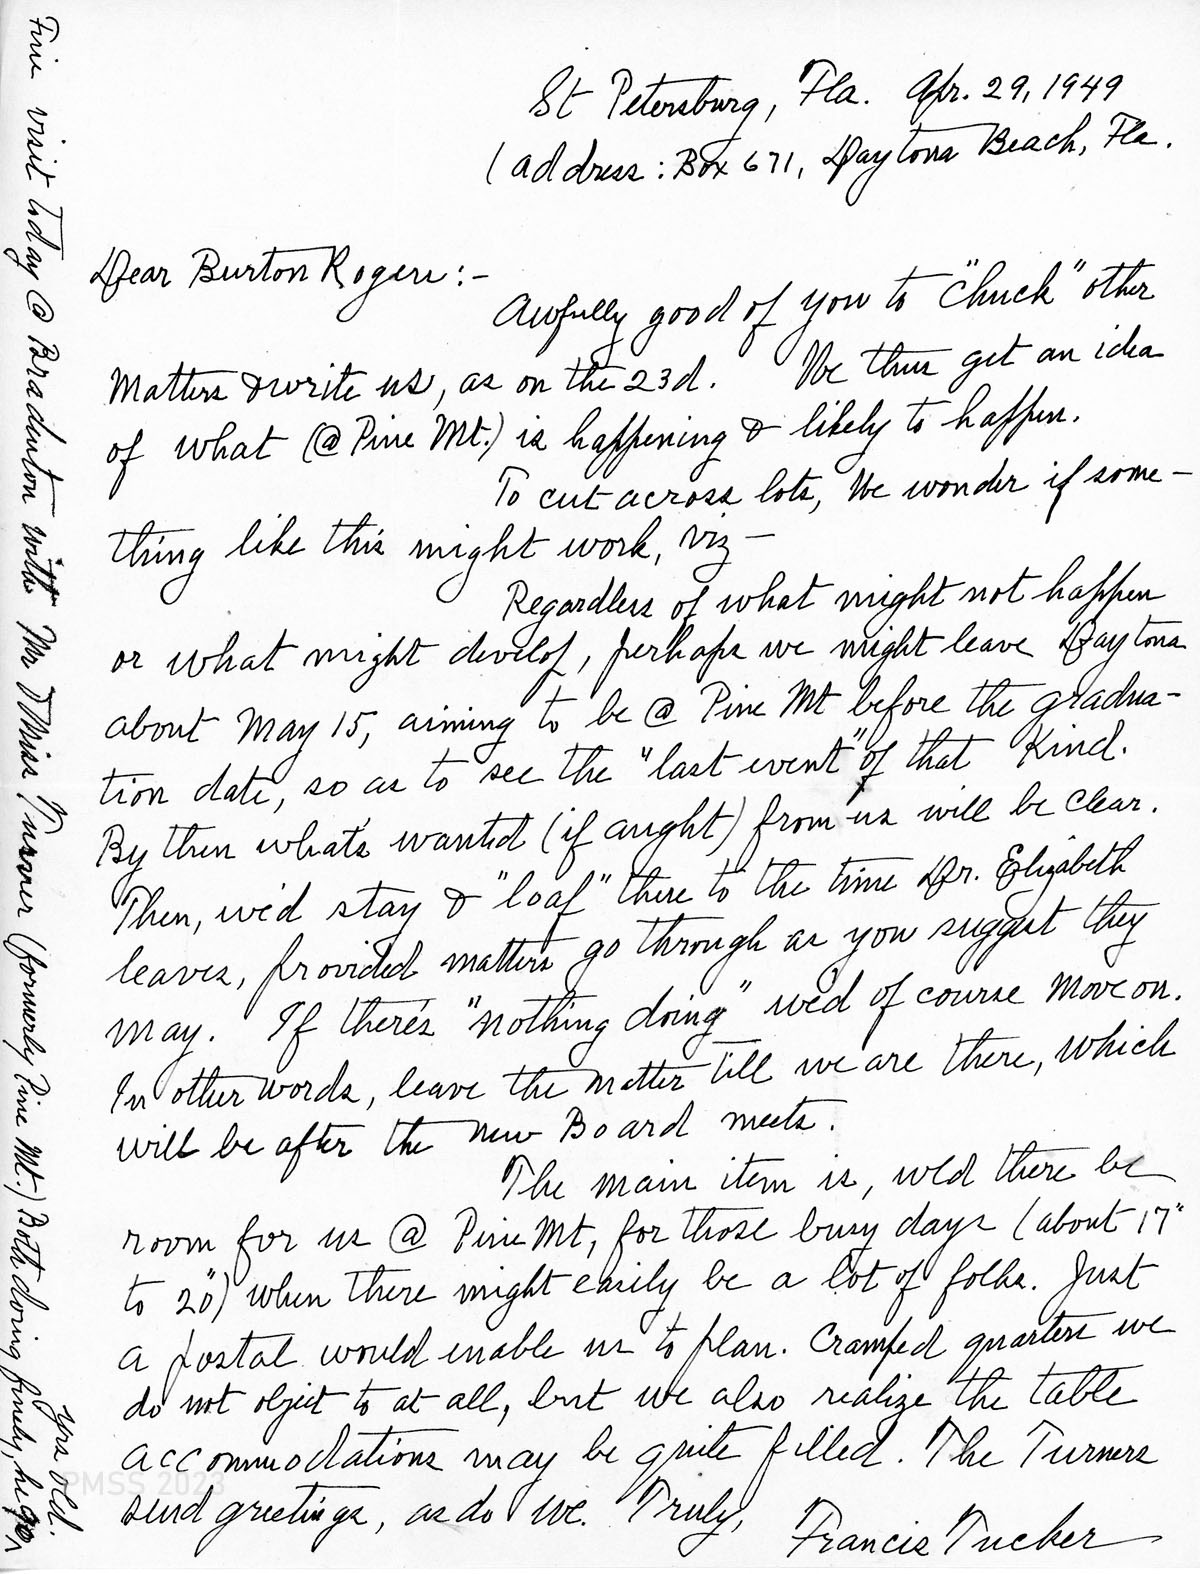 St Petersburg, Fla. Apr. 29, 1949
(address: Box 671, Daytona Beach, Fla.
Dear Burton Rogers:-
Awfully good of you to "chuck" other
matters & write us, as on the 23d. We thus get an idea
of what (@ Pine Mt.) is happening & likely to happen.
To cut across lots, we wonder if some-
thing like this might work, viz -
Regardless of what might not happen
or what might develop, perhaps we might leave Daytona
about May 15, aiming to be @ Pine Mt before the gradua-
tion date, so as to see the "last event" of that kind.
By then what's wanted (if aught) from us will be clear.
Then, we'd stay & "loaf" there to the time Dr. Elizabeth
leaves, provided matters go through as you suggest they
may. If there's "nothing doing" we'd of course move on.
In other words, leave the matter till we are there, which
will be after the new Board meets.
The main item is, wld there be
room for us @ Pine Mt, for those busy days (about 17"
to 20") when there might easily be a lot of folks. Just
a postal would enable us to plan. Cramped quarters we
do not object to at all, but we also realize the table
accommodations may be quite filled. The Turners
send greetings, as do we. Truly,
Francis Tucker
Fine visit today @ Bradenton with Mr & Miss (formerly Pine Mt.) Both doing finely, he 90,
yrs old.
PMSS 2023